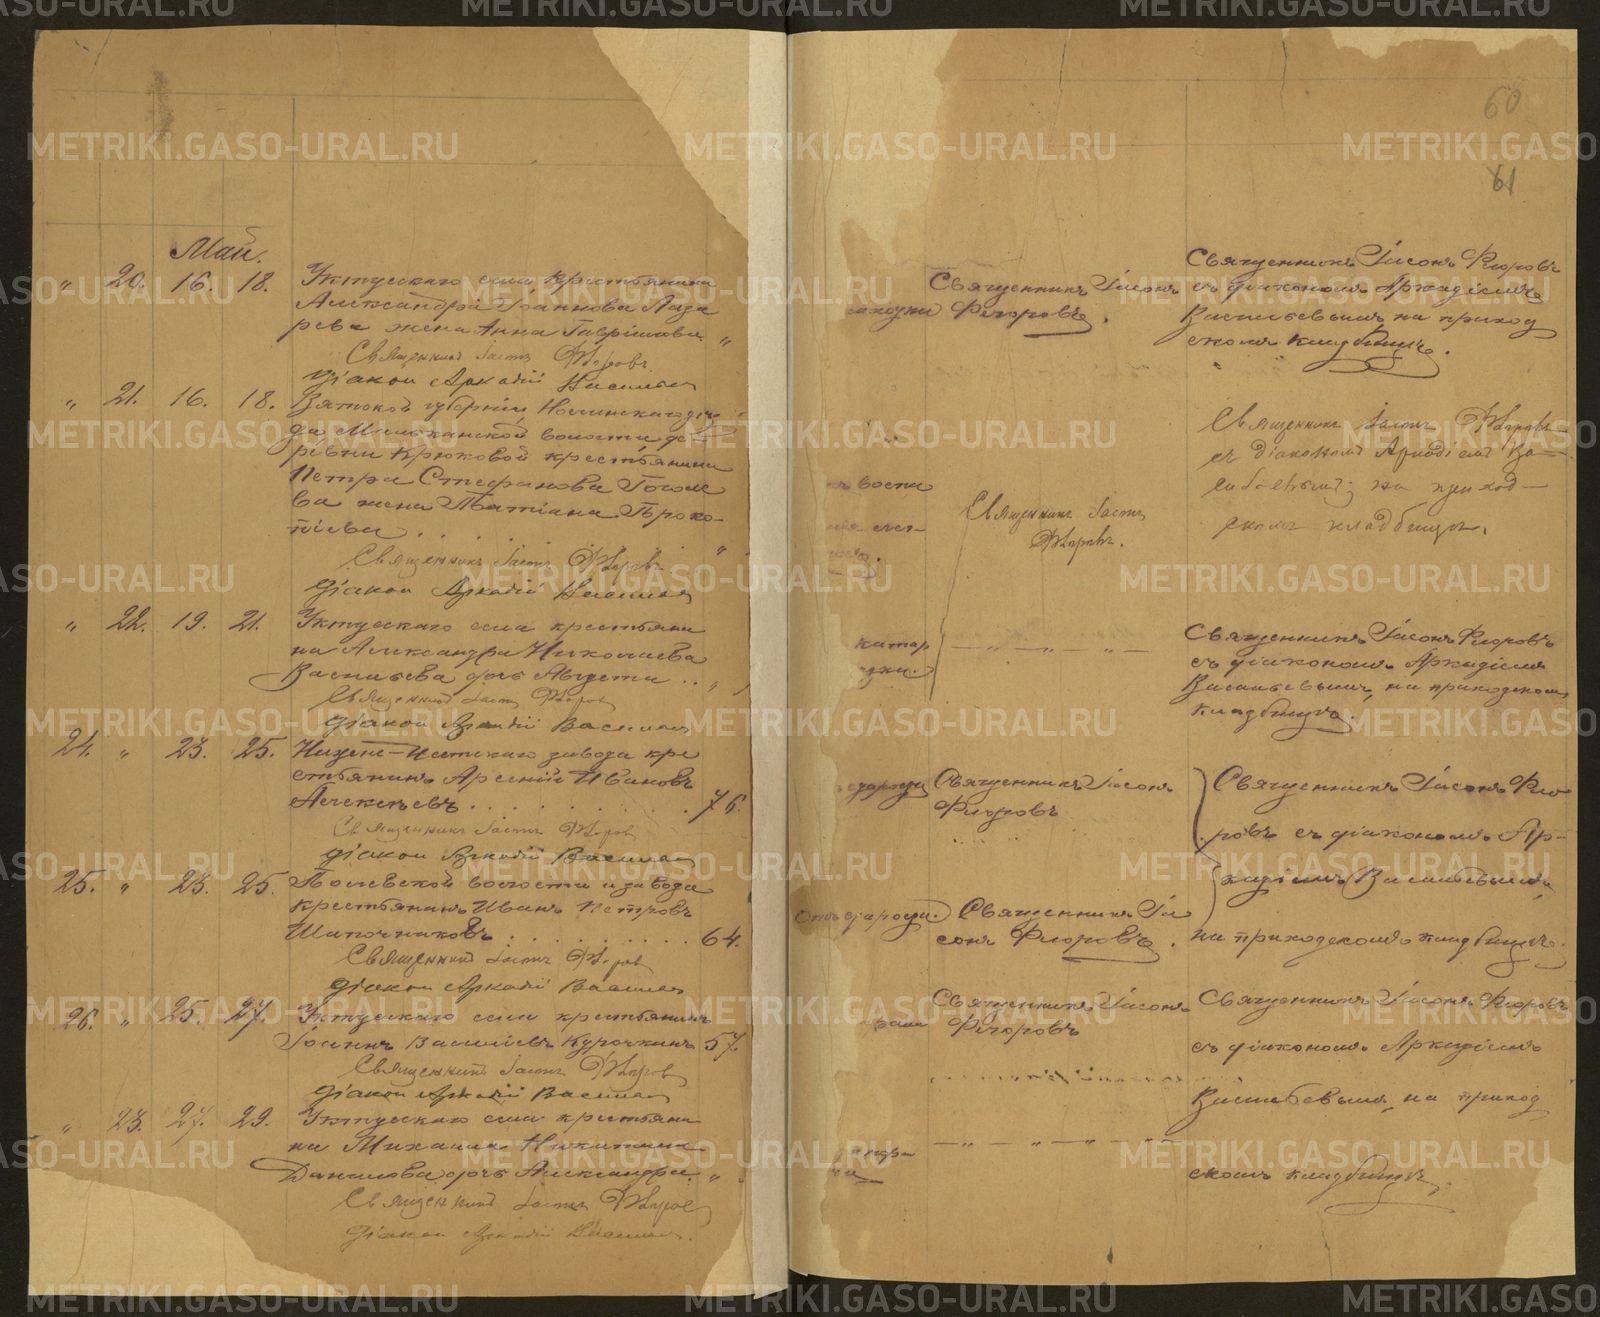 60
61
Май.
" 20. 16. 18. Уктусскаго села, крестьянина
Александра Іоаннова Лаза
рева жена Анна Гаврилова "
Священникъ Іасонъ Флоровъ
Діаконъ Аркадій Васильевъ
" 21. 16. 18. Вятской губерніи, Нолинскаго уѣз
да волости, де
ревни Крюковой крестьянина
Петра Стефанова
ва жена Татіана Проко-
піева . . . . . "
Священникъ Іасонъ Флоровъ
Діаконъ Аркадій Васильевъ
" 22. 19. 21. Уктусскаго села крестьяни
на Александра Николаева
Васильева дочь Августа . . "
Священникъ Іасонъ Флоровъ
Діаконъ Аркадій Васильевъ
24. " 23. 25. Нижне-Исетскаго завода кре
стьянинъ Арсеній Ивановъ
Алексѣевъ . . . . . . . . . 76.
Священникъ Іасонъ Флоровъ
Діаконъ Аркадій Васильевъ
25. " 23. 25. Полевской волости и завода
крестьянинъ Иванъ Петровъ
Шапочниковъ . . . . . . . . . 64.
Священникъ Іасонъ Флоровъ
Діаконъ Аркадій Васильевъ
26. " 25. 27. Уктусскаго села крестьянинъ
Іоаннъ Васильевъ Курочкинъ 57.
Священникъ Іасонъ Флоровъ
Діаконъ Аркадій Васильевъ
" 23. 27. 29. Уктусскаго села крестьяни
на Михаила Никитина
Данилова дочь Александра. "
Священникъ Іасонъ Флоровъ
Діаконъ Аркадій Васильевъ.
Священникъ Іасонъ
Флоровъ.
Священникъ Іасонъ Флоровъ
съ діакономъ Аркадіемъ
Васильевымъ на приход
скомъ кладбищѣ.
воспа
Священникъ Іасонъ
Флоровъ.
Священникъ Іасонъ Флоровъ
съ діакономъ Аркадіемъ Ва=
сильевымъ; на приход-
скомъ кладбищѣ.
катар
— " — " — " —
Священникъ Іасонъ Флоровъ
съ діакономъ Аркадіемъ
Васильевымъ, на приходскомъ
кладбищѣ.
старости
Священникъ Іасонъ
Флоровъ
Отъ старости.
Священникъ Іа
сонъ Флоровъ.
Священникъ Іасонъ Фло
ровъ съ діакономъ Ар-
кадіемъ Васильевымъ,
на приходскомъ кладбищѣ.
Священникъ Іасонъ
Флоровъ
— " — " — " — " —
Священникъ Іасонъ Флоровъ
съ діакономъ Аркадіемъ
Васильевымъ, на приход
скомъ кладбищѣ.
METRIKI.GASO-URAL.RU